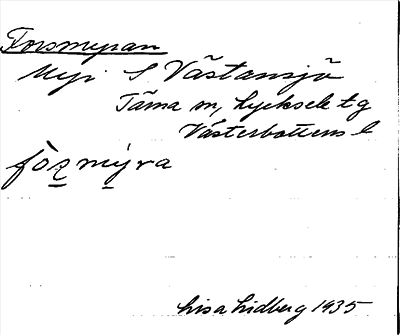 Forsmyran
Myr S Västansjö
Tärna sn, Lycksele tg
Västerbottens l
fòrmýra
Lisa Lidberg 1935